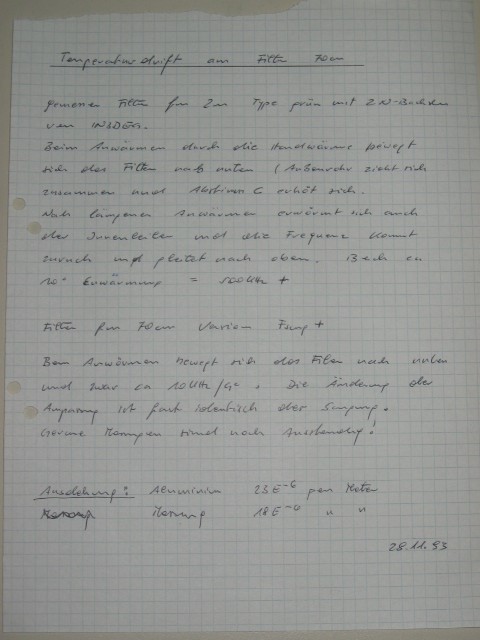 Temperaturdrift am Filter 70cm
gemessen Filter für 2m Type grün mit 2 N-Buchsen
von
Beim Anwärmen durch die Handwärme bewegt
sich das Filter nach unten (Außenrohr zieht sich
zusammen und C erhöt sich.
Nach längerem Anwärmen erwärmt sich auch
der Innenleiter und die Frequenz kommt
zurück und nach oben. Bech ca
10° Erwärmung = 500KHz +
Filter für 70cm Varian +
Beim Anwärmen bewegt sich das Filter nach unten
und zwar ca 10KHz/C° . Die Änderung der
Anpassung ist fast identisch der
Messungen sind noch Ausstendig!
Ausdehung: Aluminium 23E-6 pro Meter
Messing 18E-6 " "
28.11.93